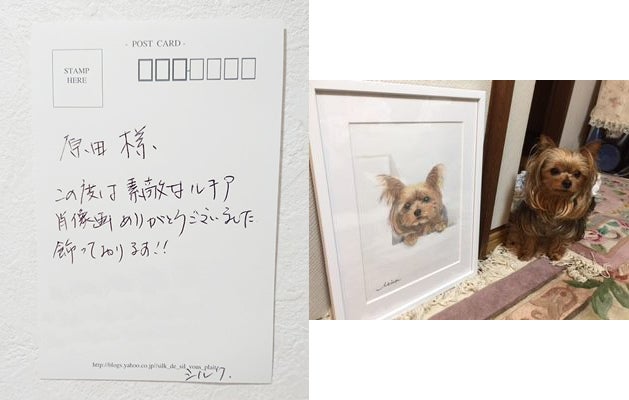 - POST CARD -
STAMP
HERE
原田 様、
この度は 素敵な ルチア
肖像画 ありがとうございました
飾っております!!
http://blogs.yahoo.co.jp/silk_de_sil_vous_plait/
シルク.